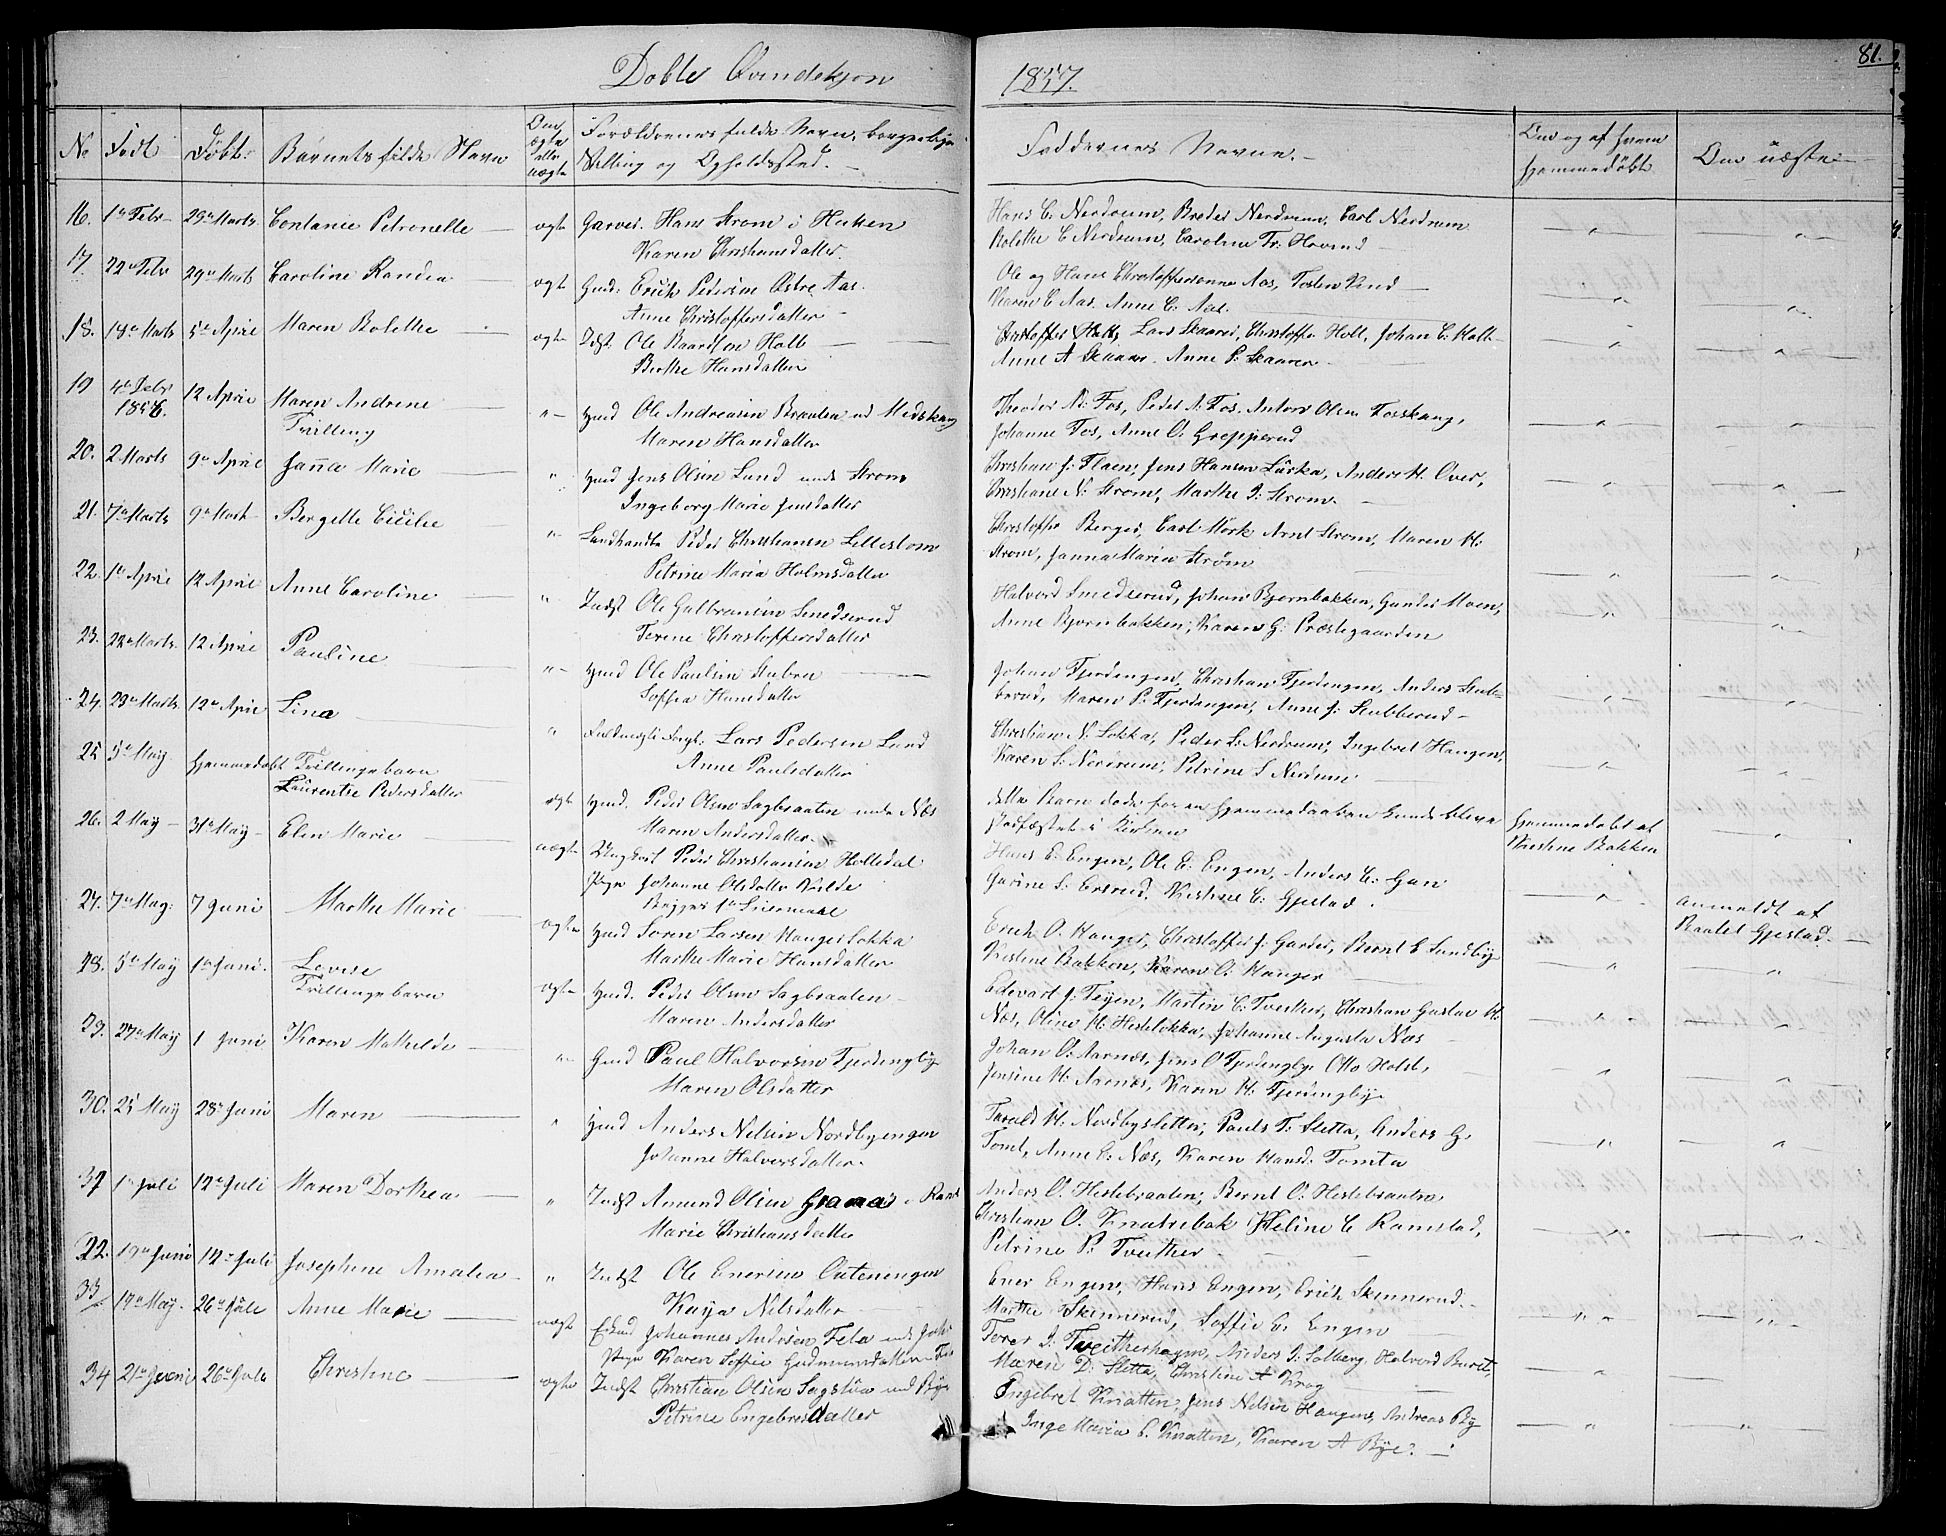 81.
Døbte Qvindekjøn 1857.
No Født Døbt Barnets fulde Navn Om ægte eller uægte Forældrenes fulde Navn, borgerlige Stilling og Opholdssted. Faddernes Navne. Om og af hvem hjemmedøbt Om
16. 1de Febr 29de Marts Contanie Petronelle ægte Garver Hans Strøm i
Karen Christiansdatter.
Hans C. Nerdrum, Carl Nerdrum
Bolette C Nerdrum, Caroline Fr. Hovind
17. 22de Febr 29de Marts Caroline Randea ægte Gmd. Erich Pedersen Østre Aas.
Anne Christoffersdatter
Ole og Hans Christoffersønner Aas, Torsten
Karen C Aas. Anne C. Aas.
18. 18de Marts 5te April Maren Bolette ægte Indst Ole Baardsen Holt
Berthe Hansdatter
Lars Skaarer, Christoffer Holt, Johan C. Holt
Anne A Skaarer. Anne P. Skaarer
19 4de Febr 1856. 12 April Maren Andrine Tvilling " Hmd Ole Andreasen Braaten ud Melskoug
Maren Hansdatter
Theodor N. Fos, Peder A. Fos, Anton Olsen Fosskaug,
Johanne Fos, Anne O. Grepperud
20. 2 Marts 9de April Janna Marie " Hmd Jens Olsen Lund under Strøm
Ingeborg Marie Jensdatter
Christian J. Flaen, Jens Hansen Lürka, Anders H. Over,
Christiane N. Strøm, Marthe J. Strøm.
21. 7de Marts 9de Bergette Cicilie " Landhandler Peder Christiansen Lillestrøm
Petrine Maria Holmsdatter
Christoffer Berger, Carl Mörk Arnt Strøm, Maren H.
Strøm, Janna Maria Strøm
22. 1de April 12 April Anne Caroline " Indst Ole Gulbransen Smedserud
Terene Christoffersdatter
Halvord Smedserud, Johan Bjørnbakken, Gunder Moen,
Anne Bjørnbakken, Karen G. Præstegaarden
23. 22de Marts 12 April Pauline " Hmd Ole Paulsen
Soffia Hansdatter
Johan Fjerdingen, Christian Fjerdingen, Anders Stub-
berud, Maren P. Fjerdingen, Anne J. Stubberud
24. 29de Marts 12te April Lina " Lars Pedersen Lund
Anne Paulsdatter
Christian N. Løkka, Peder L. Nerdrum, Ingebret Haugen,
Karen L. Nerdrum, Petrine L Nerdrum
25 5de May Hjemmedøbt Tvillingebarn
Laurentse Pedersdatter ægte Hmd. Peder Olsen Sagbraaten under Næs
Maren Andersdatter
dette Barn døde før en Hjemmedaaben kunde blive
stadfæstet i Kirken
Hjemmedøbt af
Kirstine Bakken
26. 2 May 31te May Elen Marie uægte Ungkarl Peder Christiansen Holledal
Pige Johanne Olsdatter Kulde
Begges 1ste Leiermaal
Hans E. Engen, Ole E. Engen, Anders C. Gan
Garine S. Ersrud, Kirstine C. Gjestad.
anmeldt af
Gjestad.
27. 7de May 7 Juni Marthe Marie ægte Hmd Søren Larsen Mangerløkka
Marthe Marie Hansdatter
Erich O. Manger, Christoffer J. Garder, Bernt E Sundby
Kirstine Bakken, Karen O. Manger
28. 5te May 1de Juni Lovise
Tvillingebarn ægte Hmd. Peder Olsen Sagbraaten
Maren Andersdatter
Edevart J. Teyen, Martin C. Tveither, Christian Gustav H.
Næs, Oline H. Hesteløkka, Johanne Augusta Næs
29. 27de May 1 Juni Karen Mathilde " Gmd Paul Halvorsen Fjerdingbye
Maren Olsdatter
Johan O. Aarnæs, Jens O Fjerdingbye Otto Holst,
Jensine H. Aarnæs, Karen H. Fjerdingbye
30. 25 May 28de Juni Maren " Hmd Anders Nelsen Nordbyengen
Johanne Halvorsdatter
Tarald H. Nordbysletta, Paul T. Sletta, Anders G.
Tomt, Anne C. Næs, Karen Hansd. Tomta
31 1de Juli 12te Juli Maren Dorthea " Indst Amund Olsen
Marie Christiansdatter
Anders O. Hestebraaten, Bernt O. Hestebraaten,
Christian O. Knatrebak Heline C Ramstad,
Petrine P. Tveither
32. 19de Juni 12te Juli Josephine Amalia " Indst Ole Enersen
Kaya Nilsdatter
Ener Engen, Hans Engen, Erich Skinnerud.
Marthe Skinnerud, Soffie E. Engen
33 17de May. 26de Juli Anne Marie uægte Johannes Andersen Fela
Pige Karen Soffie Gudmundsdatter
Torer J. Tveitherhagen, Anders J. Solberg, Halvord
Maren D. Sletta, Christine A Krog
34 21de Juni 26de Juli Christine ægte Indst Christian Olsen Sagstuen und Bye
Petrine Engebretsdatter
Engebret Knatten, Jens Nelsen Haugen, Andreas By
Inge Maria C. Knatten, Karen A Bye.